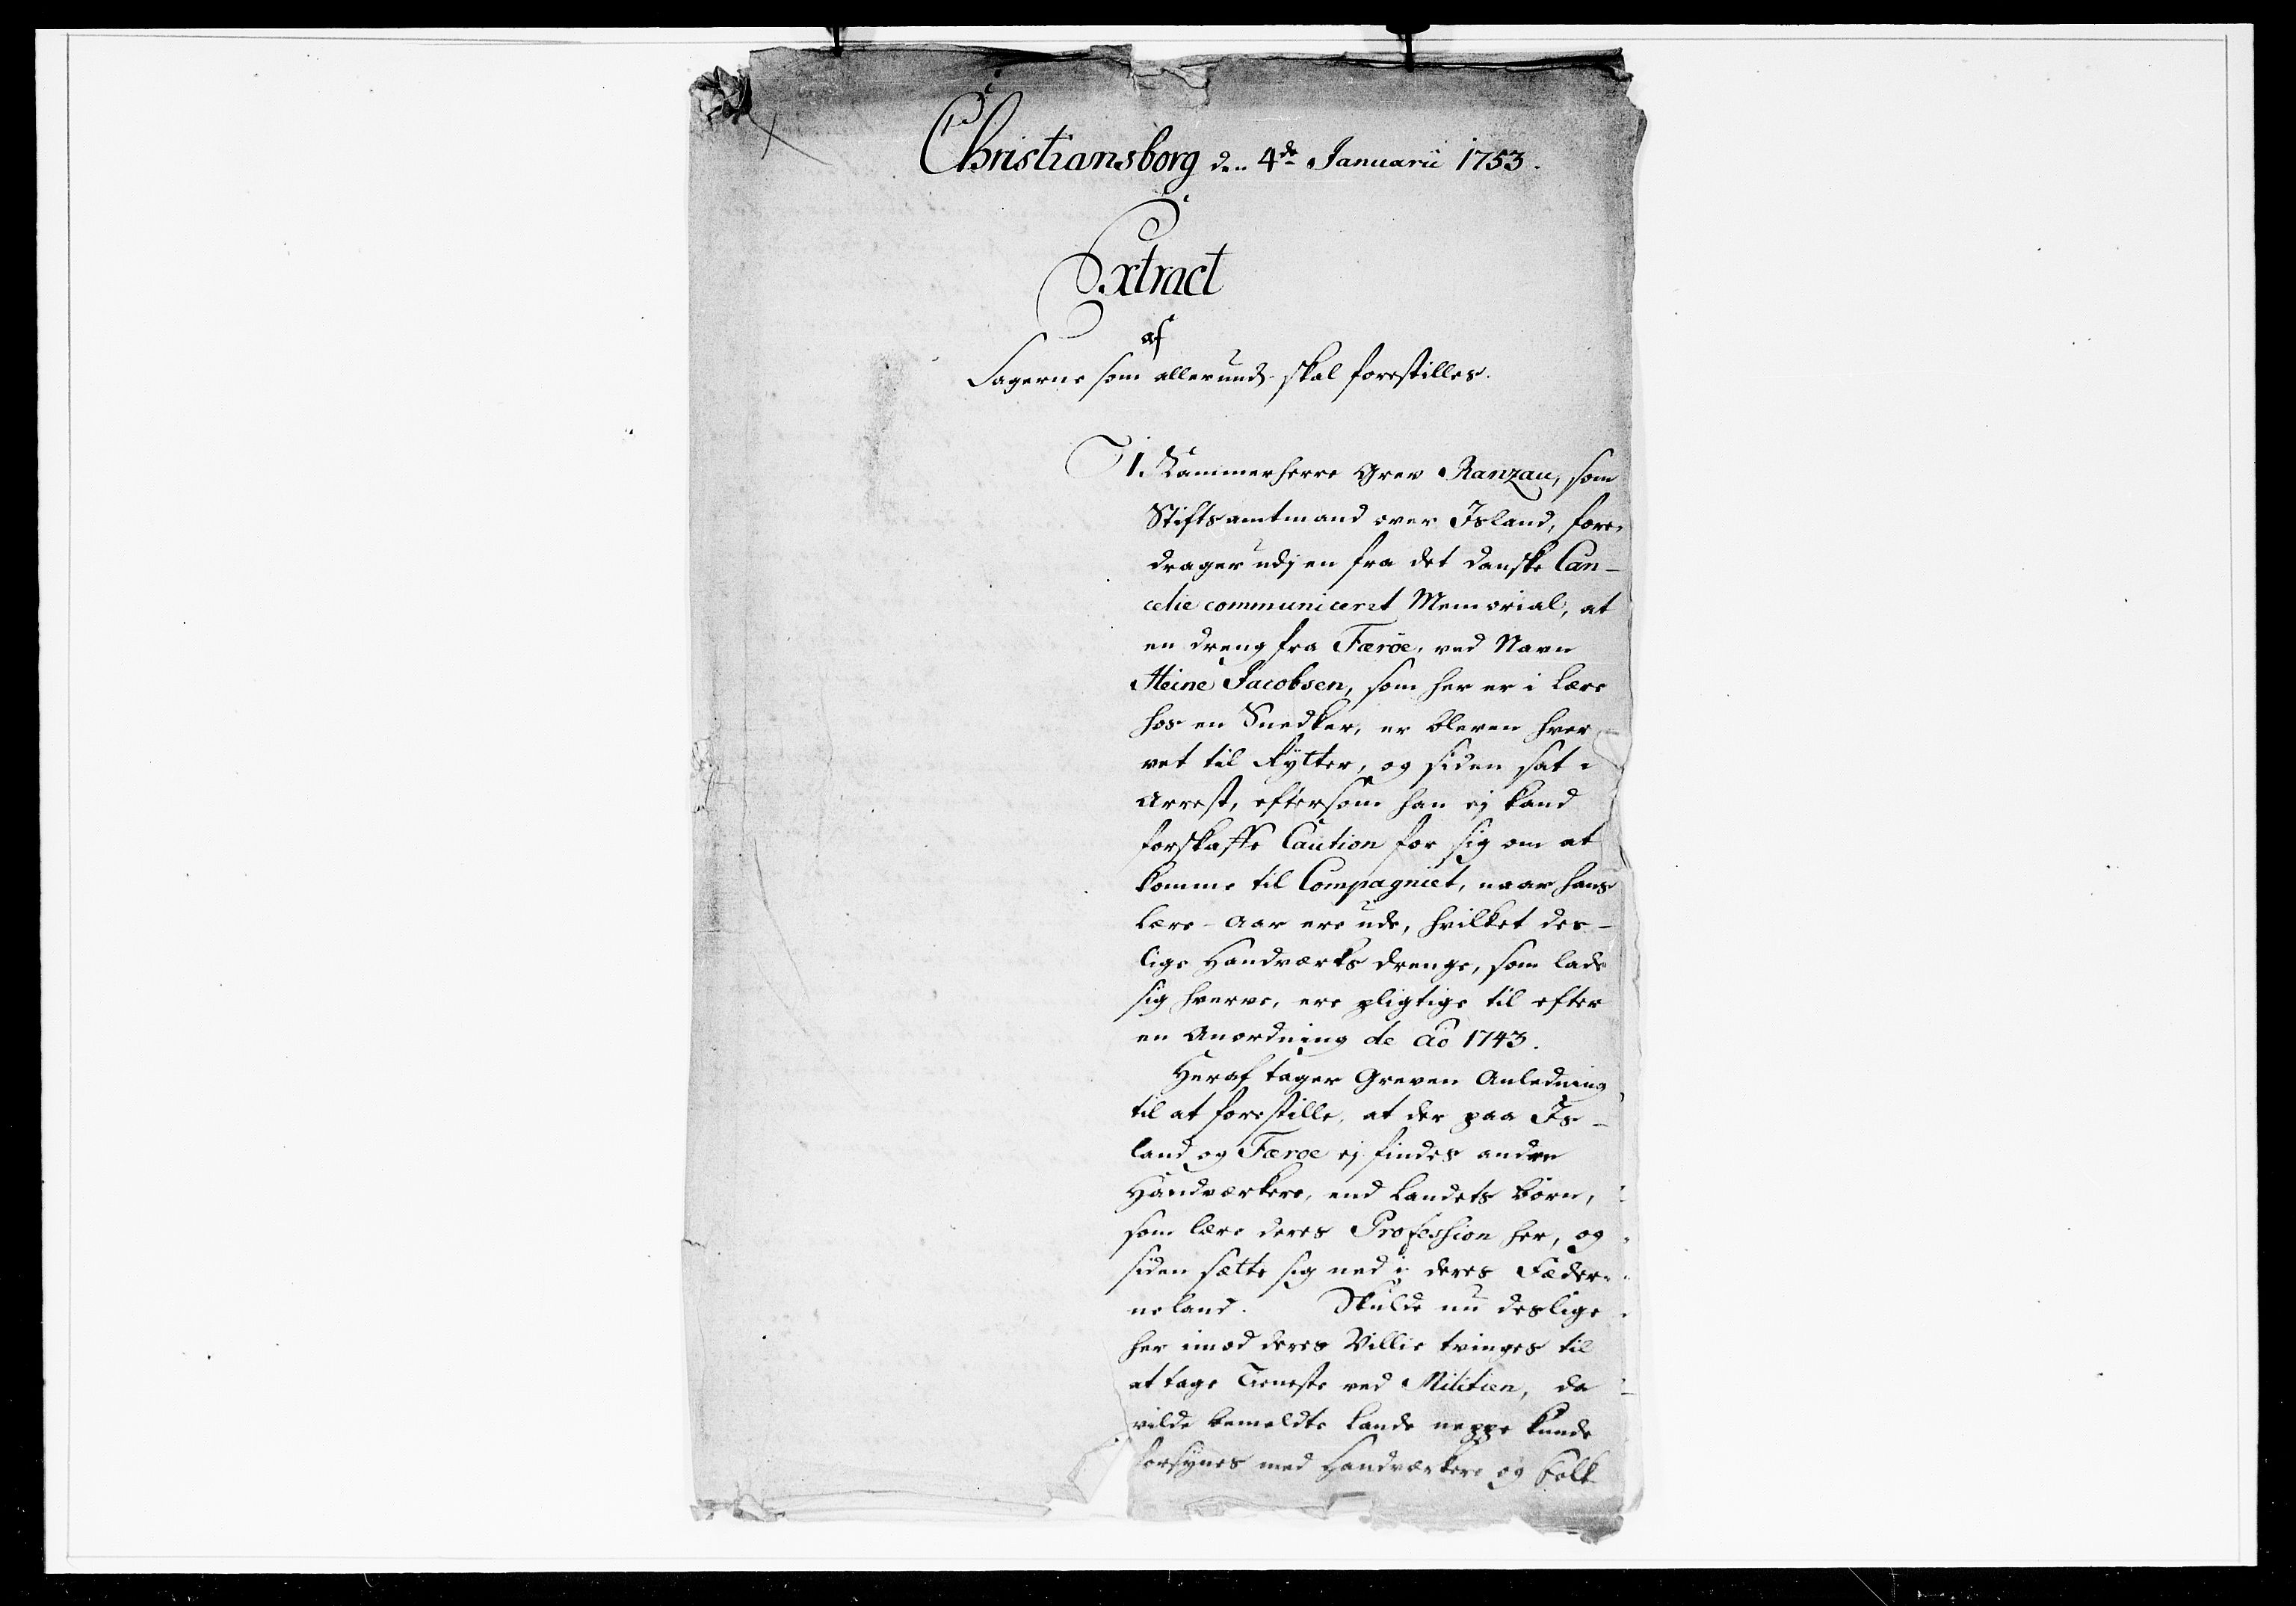 Christiansborg den 4de Januarii 1753.
Extract
af
Sagerne som allerund. skal forestilles.
1. Kammerherre Grev Ranzau, som
Stiftsamtmand over Island, fore-
drager udj en fra det danske Can-
celie communiceret Memorial, at
en dreng fra Færöe, ved Navn
Heine Jacobsen, som her er i lære
hos en Snedker, er bleven hver-
vet til Rytter, og siden sat i
Arrest, eftersom han ej kand
forskaffe Caution for sig om at
komme til Compagniet, naar hans
Lære-Aar ere ude, hvilket des-
lige Handværks drenge, som lade
sig hverve, ere pligtige til efter
en Anordning de aō 1743.
Heraf tager Greven Anledning
til at forestille, at der paa Is-
land og Færoe ej findes andre
Handværkere, end Landets börn,
som lære deres Profession her, og
siden sætte sig ned i deres Fæder-
neland. Skulde nu deslige
her imod deres Villie tvinges til
at tage Tieneste ved Militien, da
vilde bemeldte Lande neppe kunde
forsynes med Handværkere og folk